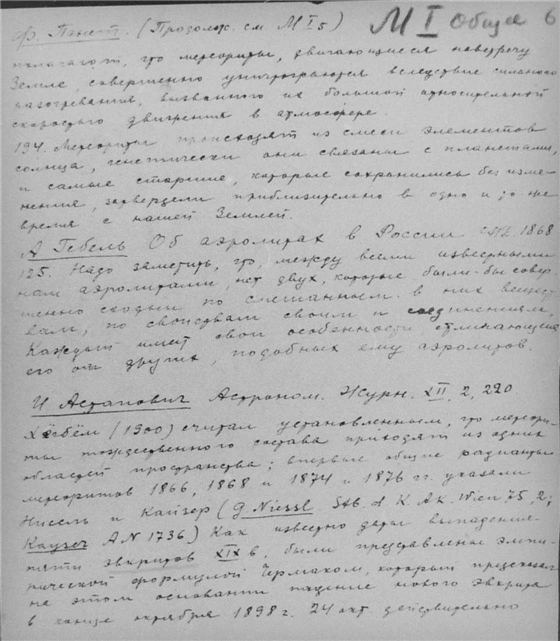 Ф. Панет. (Продолж. см. М I 5) М I Общее 6
полагают, что метеориты, двигающиеся навстречу
Земле, совершенно уничтожаются вследствие сильного
разогревания, вызванного их большой относительной
скоростью движения в атмосфере.
194. Метеориты происходят из смеси элементов
солнца, генетически они связаны с планетами,
и самые старшие, которые сохранились без изме-
нения, затвердели приблизительно в одно и то же
время с нашей Землей.
А Гебель Об аэролитах в России СПб 1868
125. Надо заметить, что, между всеми известными
нам аэролитами, нет двух, которые были-бы совер-
шенно сходны по смешанным в них вещест
вам, по свойствам своим и соединениям,
Каждый имеет свои особенности отличающие
его от других, подобных ему аэролитов.
И Астапович Астроном. Журн. XII, 2, 220
Хёгбём (1900) считал установленным, что метеори-
ты тождественного состава приходят из одних
областей пространства; впервые общие радианты
метеоритов 1866, 1868 и 1874 и 1876 гг. указали
Ниссль и Кайзер (G. Niessl Stb. d K. Ak. Wien 75, 2;
Kayser AN 1736) Как известно даты выпадения
пяти эвкритов XIX в. были представлены эмпи-
рической формулой Чермаком, который предсказал
на этом основании падение нового эвкрита
в конце октября 1898 г. 24 окт действительно